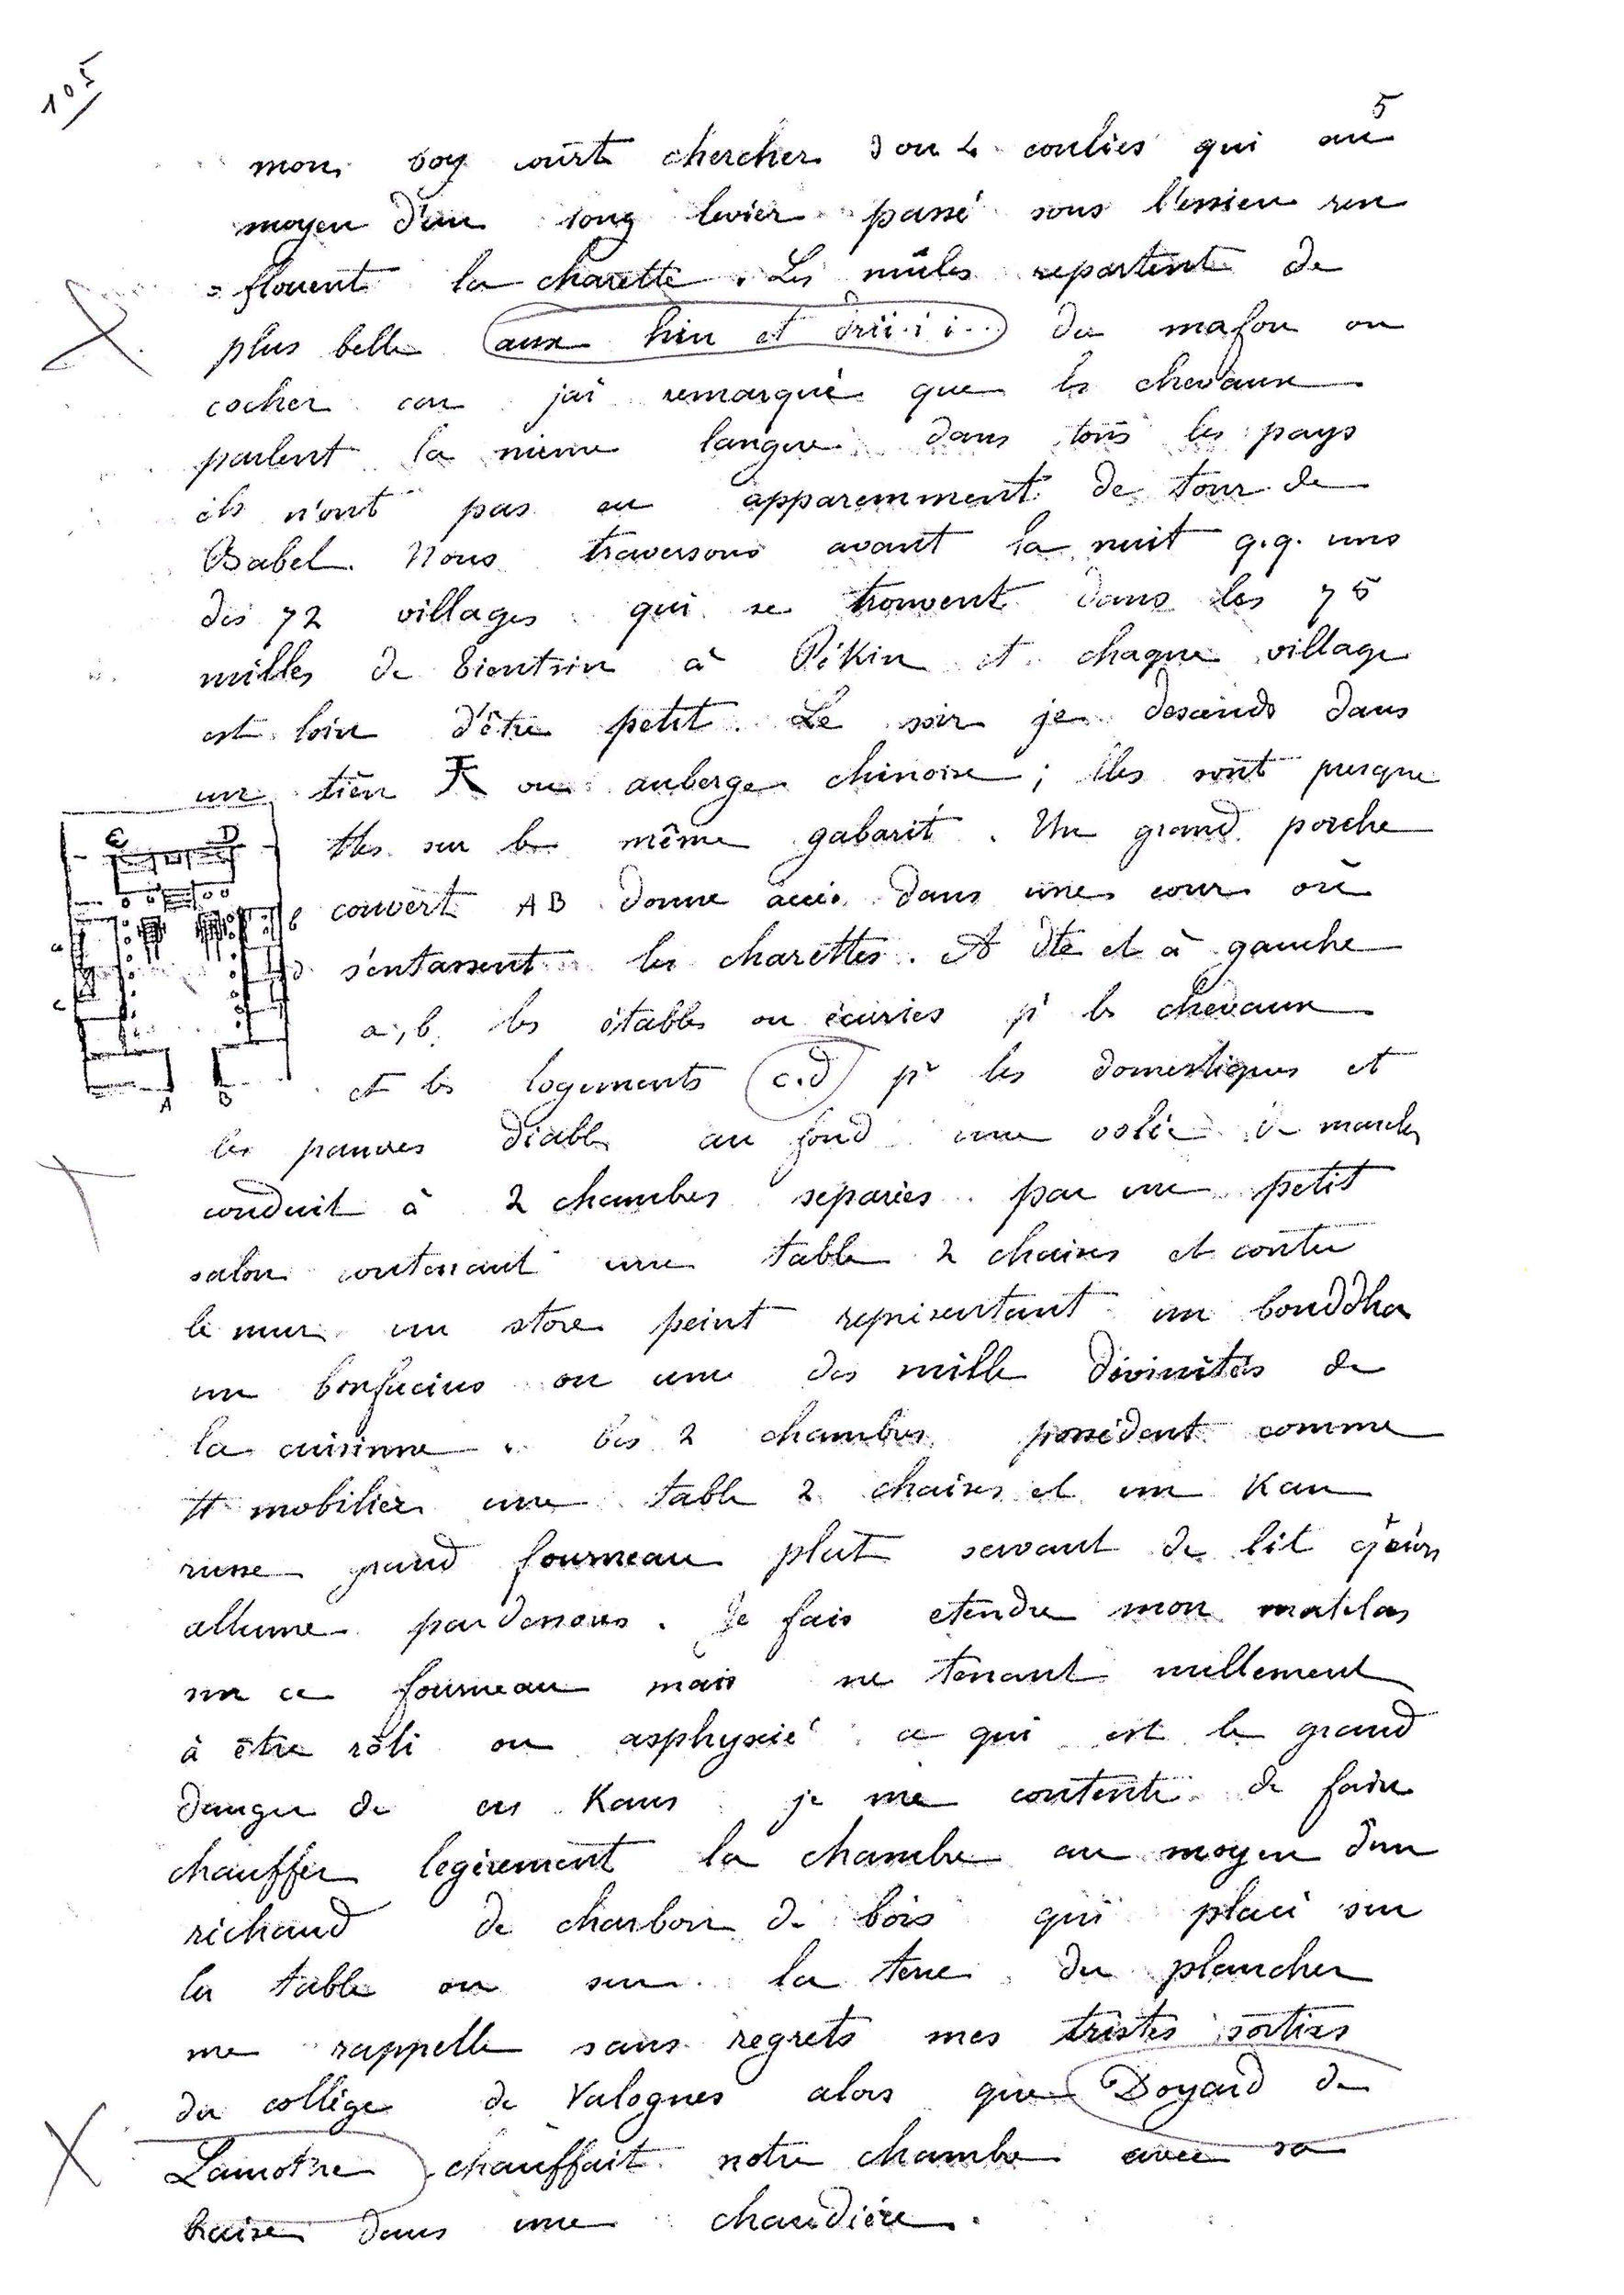 105
5
mon boy court chercher 3 ou 4 coulies qui au
moyen d'un long levier passé sous l'essieu ren
=flouent la charette. Les mules repartent de
plus belle aux hiu et driii i i... du mafou ou
cocher car j'ai remarqué que les chevaux
parlent la même langue dans tous les pays
ils n'ont pas eu apparemment de tour de
Babel. Nous traversons avant la nuit q.q. uns
des 72 villages qui se trouvent dans les 75
milles de Tientsin à Pékin et chaque village
est loin d'être petit. Le soir je descends dans
un tien 天 ou auberge chinoise ; elles sont presque
ttes sur le même gabarit. Un grand porche
couvert AB donne accès dans une cour où
s'entassent les charettes. A dte et à gauche
a, b, les étables ou écuries pr les chevaux
et les logements c.d pr les domestiques et
les pauvres diables au fond une volée de marches
conduit à 2 chambres separées par un petit
salon contenant une table 2 chaises et contre
le mur un store peint représentant un bouddha
un Confucius ou une des mille divinités de
la cuisinne. Ces 2 chambres possèdent comme
tt mobilier une table 2 chaises et un Kan
russe grand fourneau plat servant de lit
allume par dessous. Je fais etendre mon matelas
sur ce fourneau mais ne tenant nullement
à être rôti ou asphyxié ce qui est le grand
danger de ces Kans je me contente de faire
chauffer legèrement la chambre au moyen d'un
richaud de charbon de bois qui placé sur
la table ou sur la terre du plancher
me rappelle sans regrets mes tristes sorties
du collège de Valognes alors que Doyard de
Lamotre chauffait notre chambre avec sa
braise dans une chaudière.
E D
b
a
d
c
A B